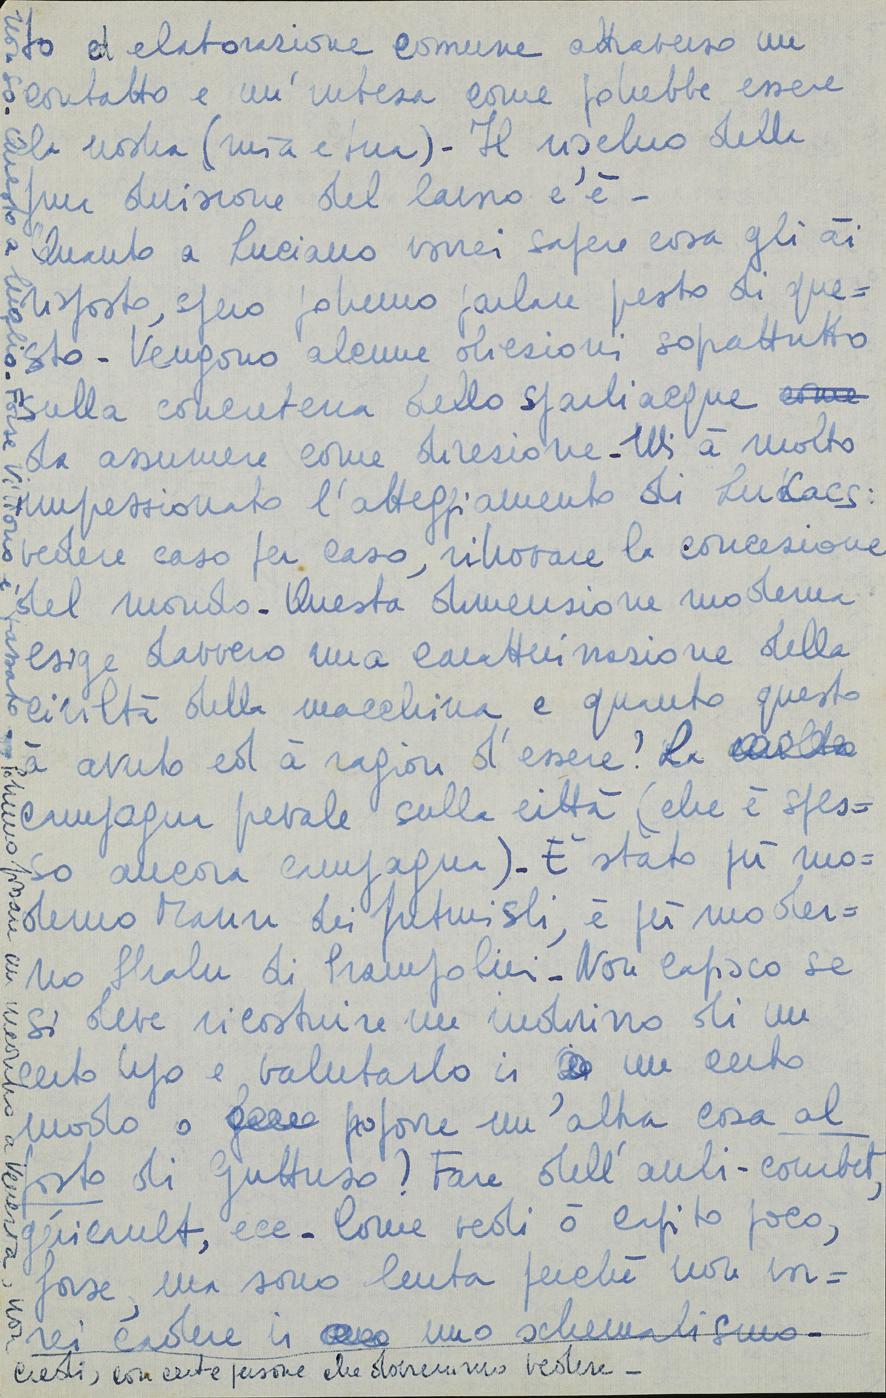 to ed elaborazione comune attraverso un
contatto e un'intesa come potrebbe essere
la nostra (mia e tua) - Il rischio della
pura divisione del lavoro c'è -
Quanto a Luciano vorrei sapere cosa gli ài
risposto, spero potremo parlare presto di que=
sto - Vengono alcune obiezioni soprattutto
sulla concretezza dello spartiacque come
da assumere come direzione - Mi à molto
impressionato l'atteggiamento di Lukacs:
vedere caso per caso, ritrovare la concezione
del mondo - Questa dimensione moderna
esige davvero una caratterizzazione della
civiltà della macchina e quanto questo
à avuto ed à ragion d'essere? La
campagna prevale sulla città (che è spes=
so ancora campagna) - È stato più mo=
derno Mann dei futuristi, è più moder=
no di Prampolini - Non capisco se
si deve ricostruire un indirizzo di un
certo tipo e valutarlo in un certo
modo o proporre un'altra cosa al
posto di Guttuso? Fare dell'anti-courbet,
géricault, ecc - Come vedi ò capito poco,
forse, ma sono lenta perché non vor=
rei cadere in uno schematismo -
non so - Questo a luglio - Forse Vittorio è passato - Potremo fissare un incontro a Venezia, non
credi, con certe persone che dovremmo vedere -